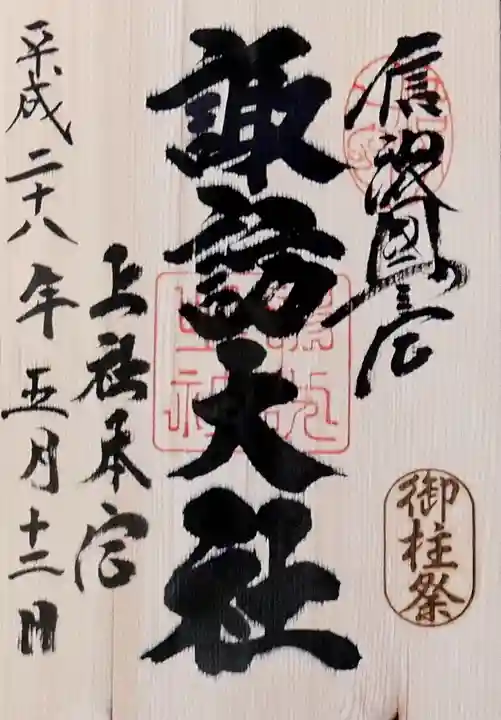 信濃國一之宮
諏訪大社
上社本宮
平成二十八年五月十二日
御柱祭